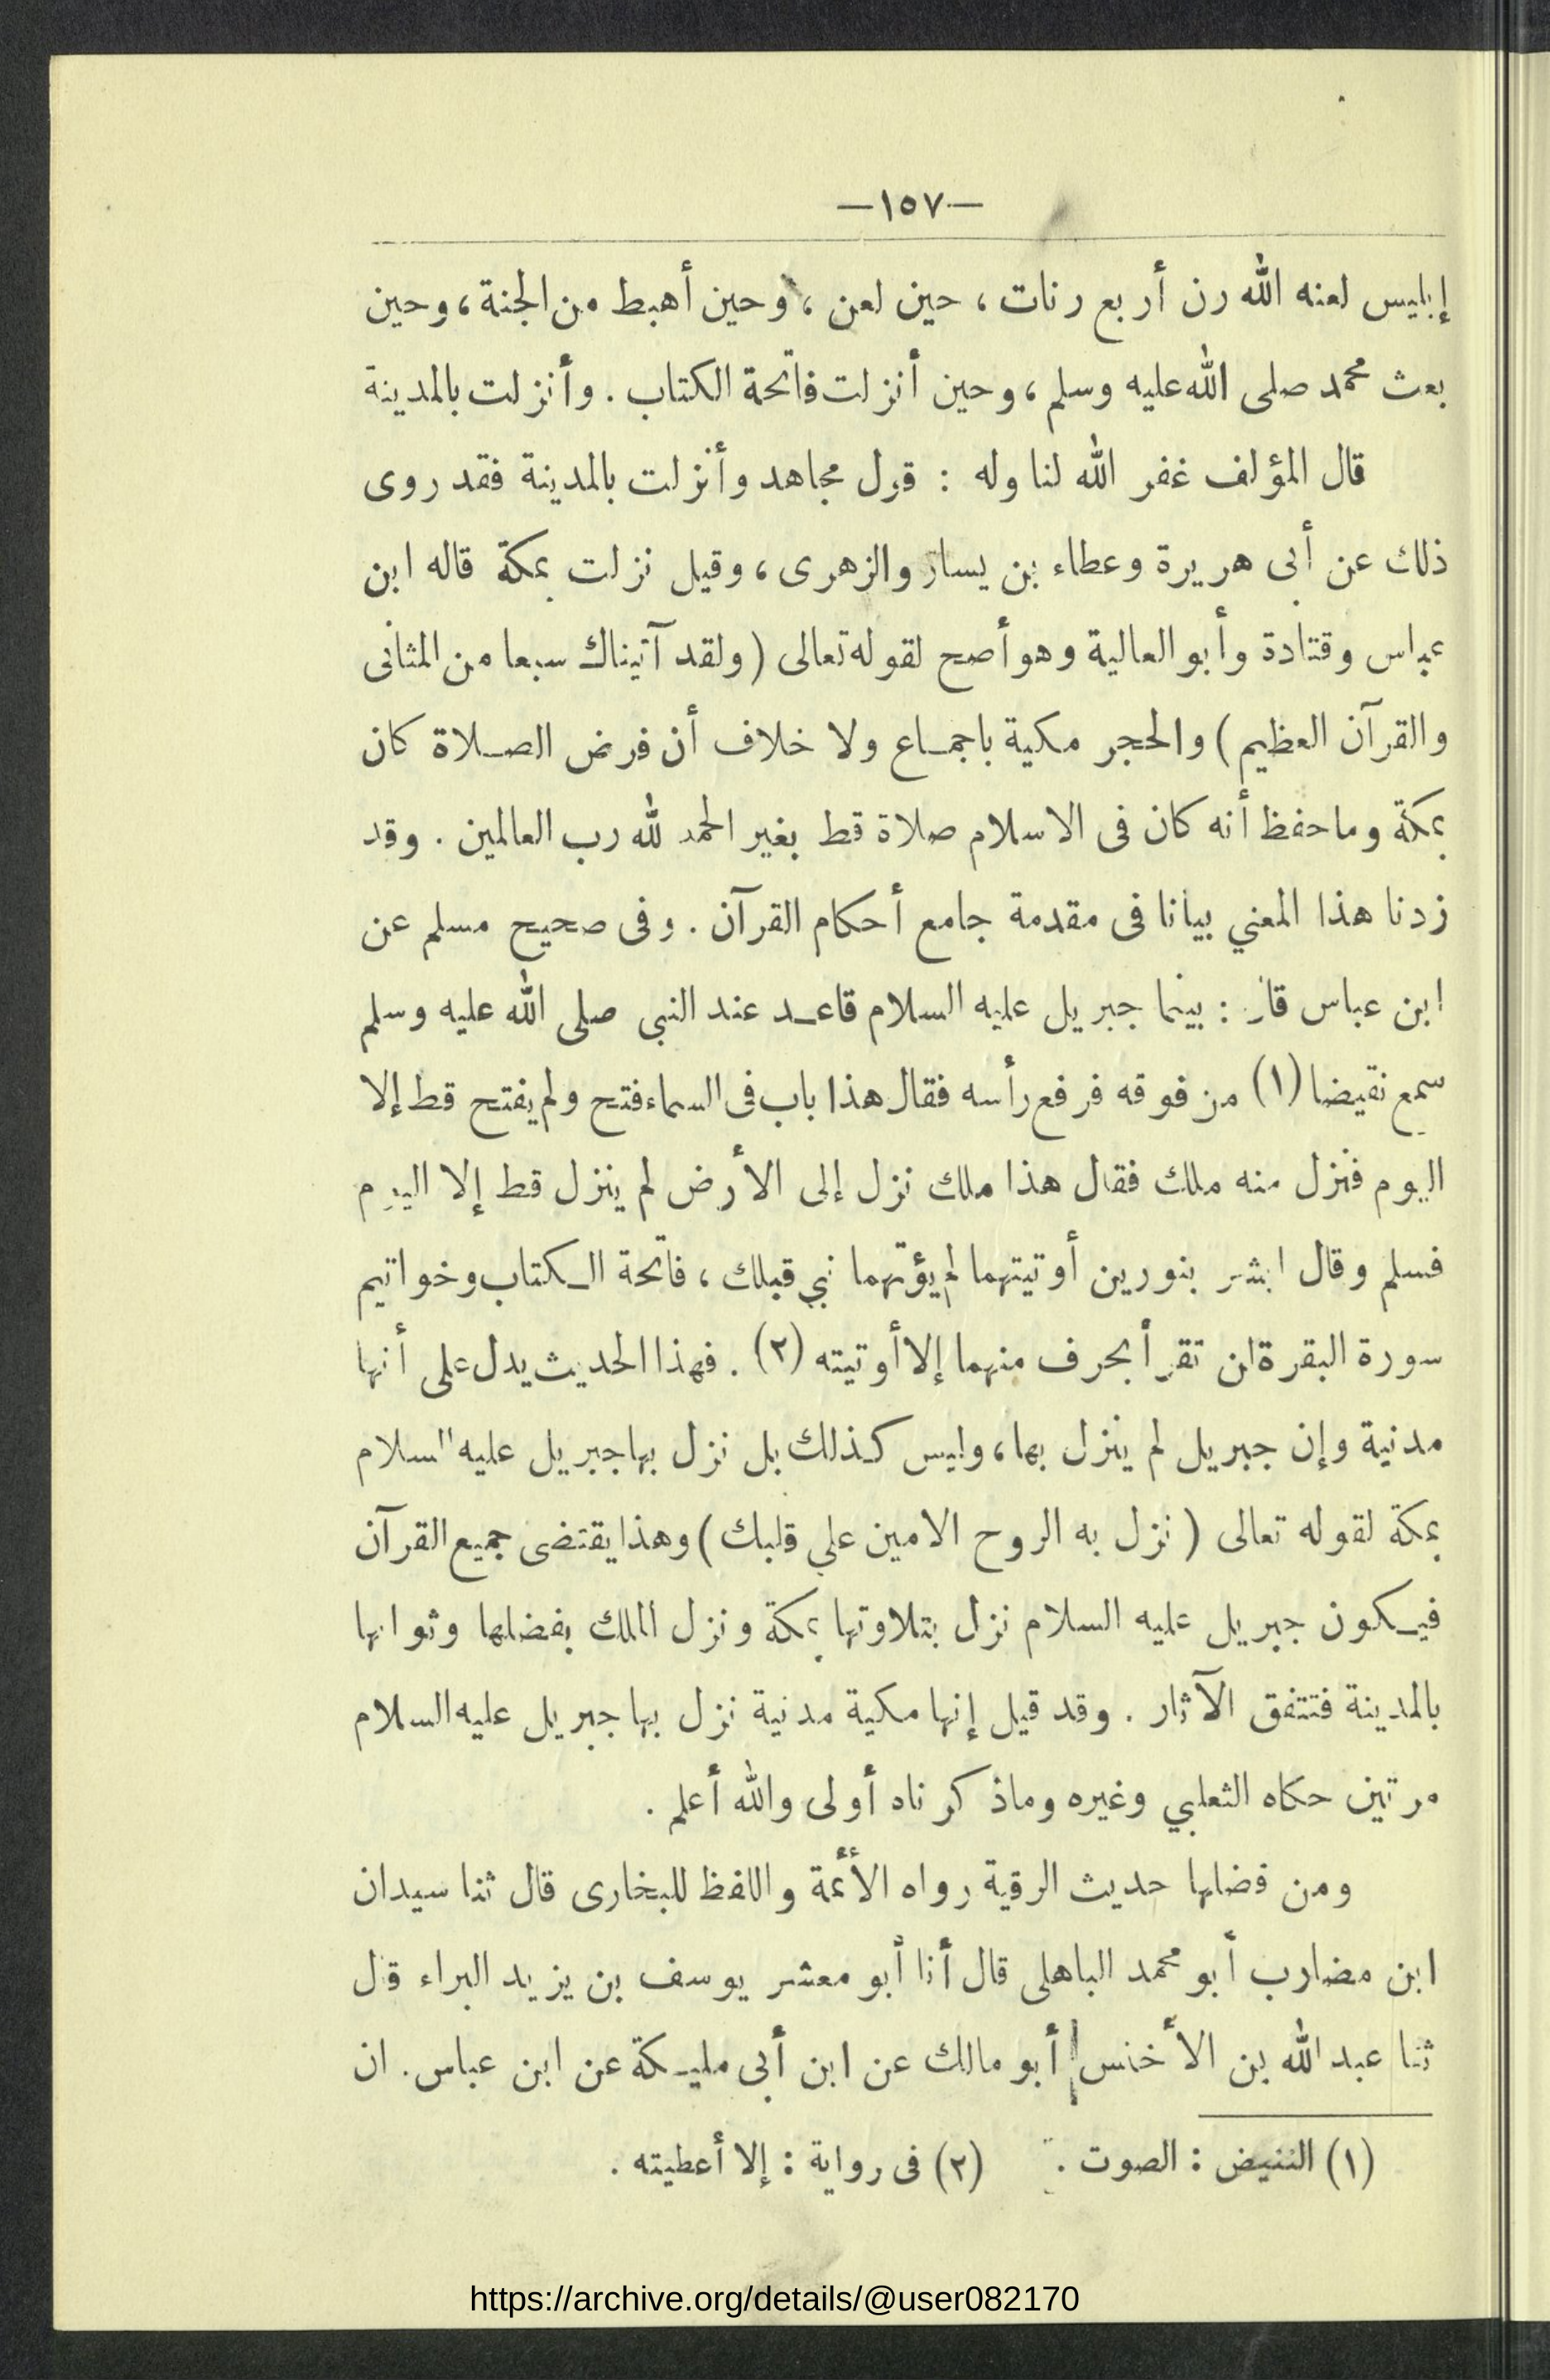 —١٥٧—
إبليس لعنه الله رن أربع رنات ، حين لعن ، وحين أهبط من الجنة ، وحين
بعث محمد صلى الله عليه وسلم ، وحين أنزلت فاتحة الكتاب . وأنزلت بالمدينة
قال المؤلف غفر الله لنا وله : قول مجاهد وأنزلت بالمدينة فقد روى
ذلك عن أبى هريرة وعطاء بن يسار والزهرى ، وقيل نزلت بمكة قاله ابن
عباس وقتادة وأبو العالية وهو أصح لقوله تعالى ( ولقد آتيناك سبعا من المثانى
والقرآن العظيم ) والحجر مكية باجماع ولا خلاف أن فرض الصلاة كان
بمكة وما حفظ أنه كان فى الاسلام صلاة قط بغير الحمد لله رب العالمين . وقد
زدنا هذا المعني بيانا فى مقدمة جامع أحكام القرآن . وفى صحيح مسلم عن
ابن عباس قال : بينما جبريل عليه السلام قاعد عند النبى صلى الله عليه وسلم
سمع نقيضا (١) من فوقه فرفع رأسه فقال هذا باب فى السماء فتح ولم يفتح قط إلا
اليوم فنزل منه ملك فقال هذا ملك نزل إلى الأرض لم ينزل قط إلا اليوم
فسلم وقال ابشر بنورين أوتيتهما لم يؤتهما نبي قبلك ، فاتحة الكتاب وخواتيم
سورة البقرة لن تقرأ بحرف منهما إلا أوتيته (٢) . فهذا الحديث يدل على أنها
مدنية وإن جبريل لم ينزل بها ، وليس كذلك بل نزل بها جبريل عليه السلام
بمكة لقوله تعالى ( نزل به الروح الامين علي قلبك ) وهذا يقتضى جميع القرآن
فيكون جبريل عليه السلام نزل بتلاوتها بمكة ونزل الملك بفضلها وثوابها
بالمدينة فتتفق الآثار . وقد قيل إنها مكية مدنية نزل بها جبريل عليه السلام
مرتين حكاه الثعلبي وغيره وماذكرناه أولى والله أعلم .
ومن فضلها حديث الرقية رواه الأئمة واللفظ للبخارى قال ثنا سيدان
ابن مضارب أبو محمد الباهلى قال أنا أبو معشر يوسف بن يزيد البراء قال
ثنا عبد الله بن الأخنس أبو مالك عن ابن أبى مليكة عن ابن عباس . ان
(١) النقيض : الصوت . (٢) فى رواية : إلا أعطيته .
https://archive.org/details/@user082170